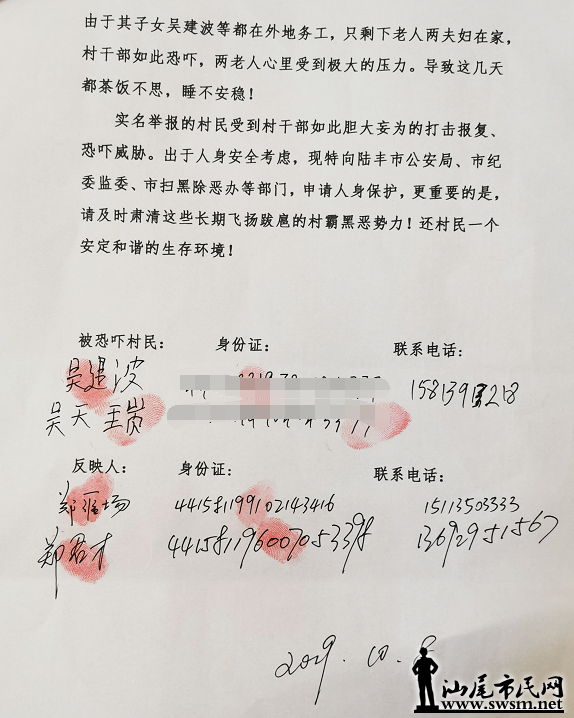 由于其子女吴建波等都在外地务工，只剩下老人两夫妇在家，
村干部如此恐吓，两老人心里受到极大的压力。导致这几天
都茶饭不思，睡不安稳！
实名举报的村民受到村干部如此胆大妄为的打击报复、
恐吓威胁。出于人身安全考虑，现特向陆丰市公安局、市纪
委监委、市扫黑除恶办等部门，申请人身保护，更重要的是，
请及时肃清这些长期飞扬跋扈的村霸黑恶势力！还村民一个
安定和谐的生存环境！
被恐吓村民： 身份证： 联系电话：
吴建波
吴天
反映人： 身份证： 联系电话：
郑 场 441581199102143416 15113503333
郑 才 13692951567
2019.10.8
汕尾市民网
www.swsm.net